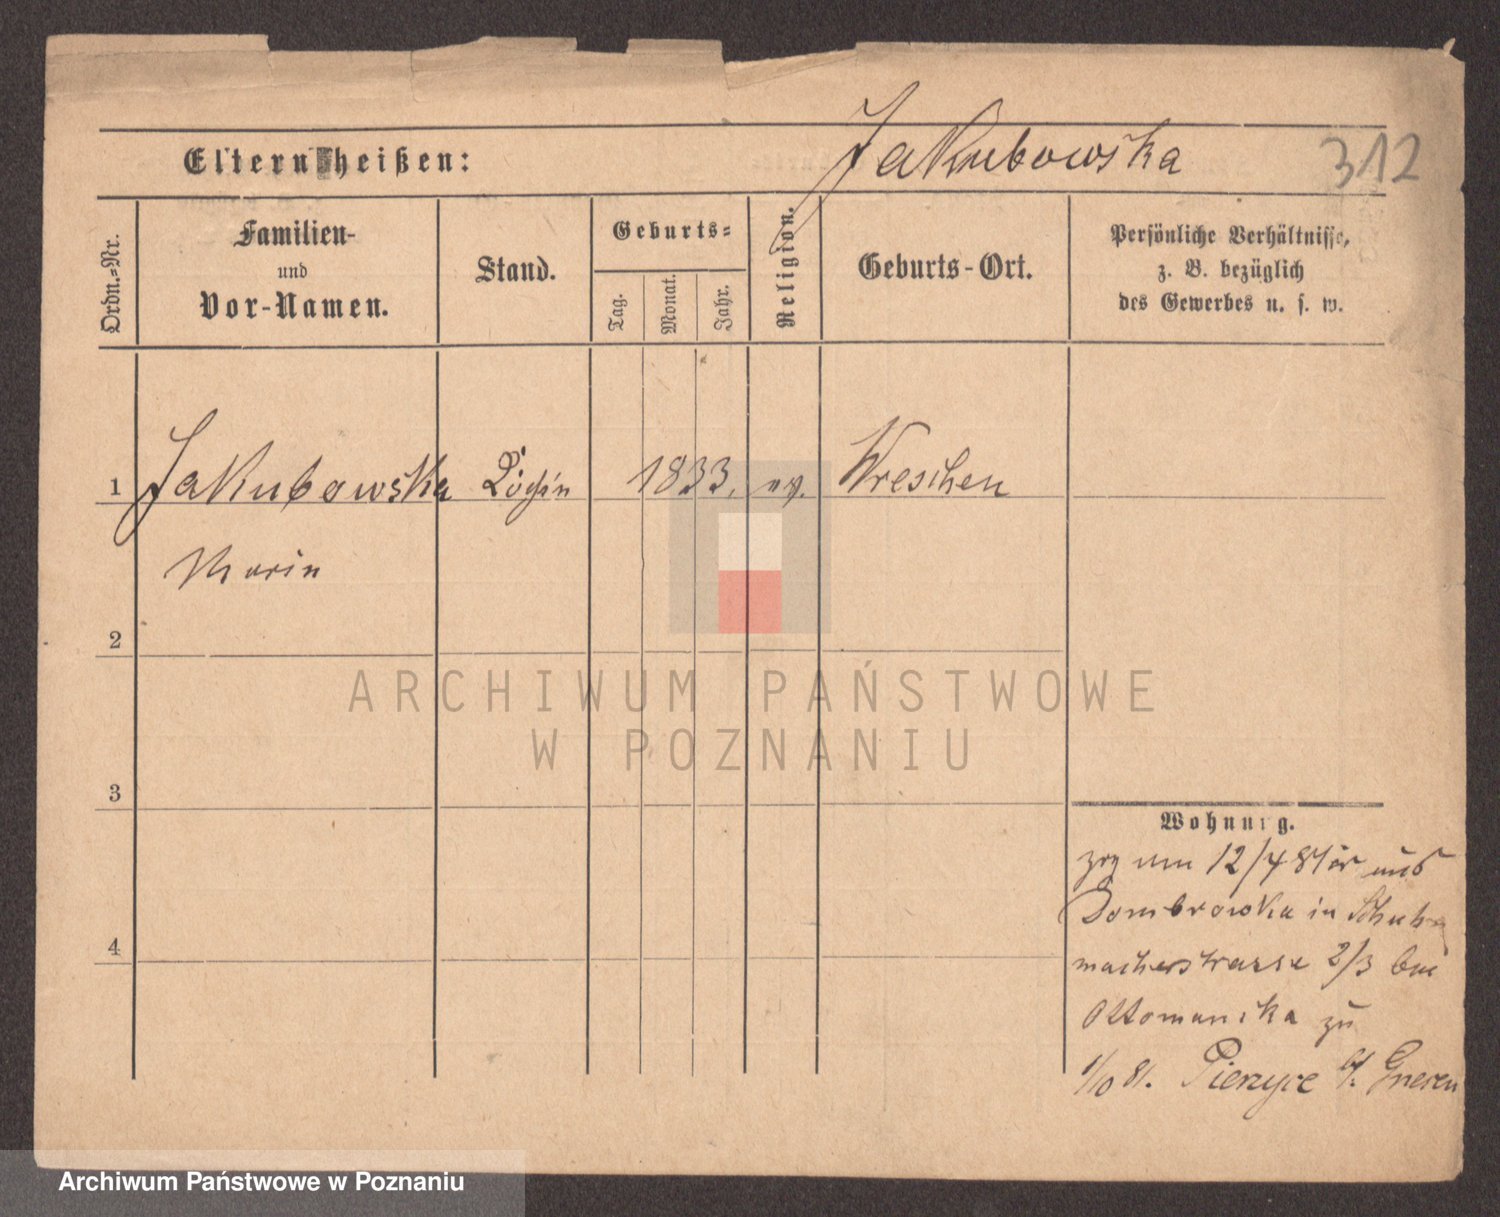 Jakubowska
312
Eltern heißen:
Ordn.=Nr.
Familien-
und
Vor-Namen.
Stand.
Geburts=
Tag.
Monat.
Jahr.
Religion.
Geburts-Ort.
Persönliche Verhältnisse,
z. B. bezüglich
des Gewerbes u. s. w.
1 Jakubowska Köchin 1833. ev. Wreschen
Marie
2
3
4
Wohnung.
zog am 12/4 81 aus
Dombrowka in Schuh
macherstrasse 2/3 bei
zu
1/10 81. b/. Gnesen
ARCHIWUM PAŃSTWOWE
W POZNANIU
Archiwum Państwowe w Poznaniu